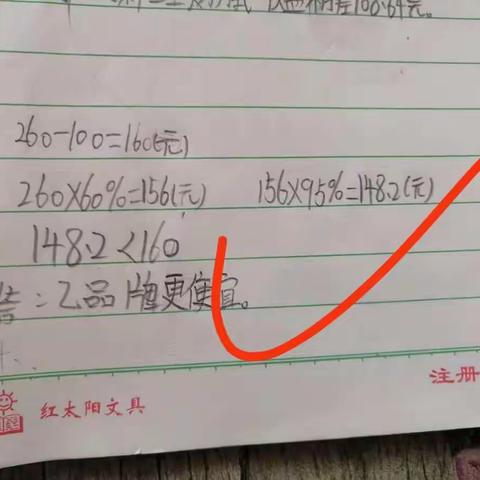 差100.64元。
260-100=160(元)
260×60%=156(元) 156×95%=148.2(元)
148.2<160
答:乙品牌更便宜。
注册
红太阳文具